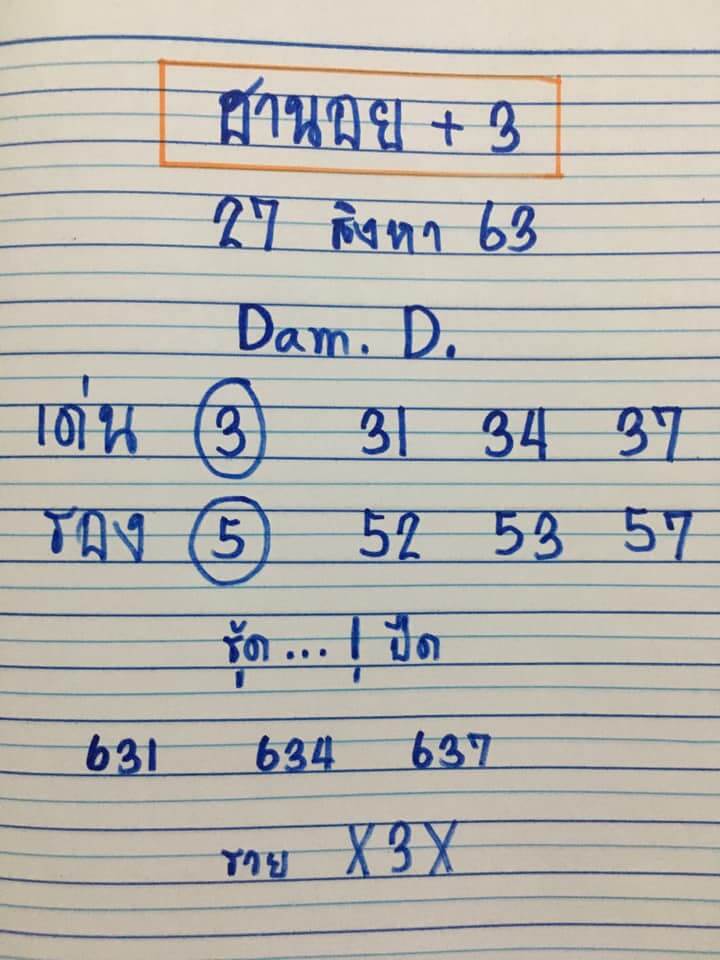 ฮานอย + 3
27 สิงหา 63
Dam. D.
เด่น 3 31 34 37
รอง 5 52 53 57
รุ้ด ... ปิด
631 634 637
ราย X3X